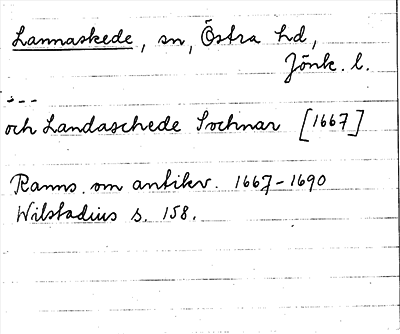 Lannaskede, sn, Östra hd,
Jönk. l.
---
och Landaschede Sochnar [1667]
Ranns. om antikv. 1667-1690
Wilstadius s. 158.